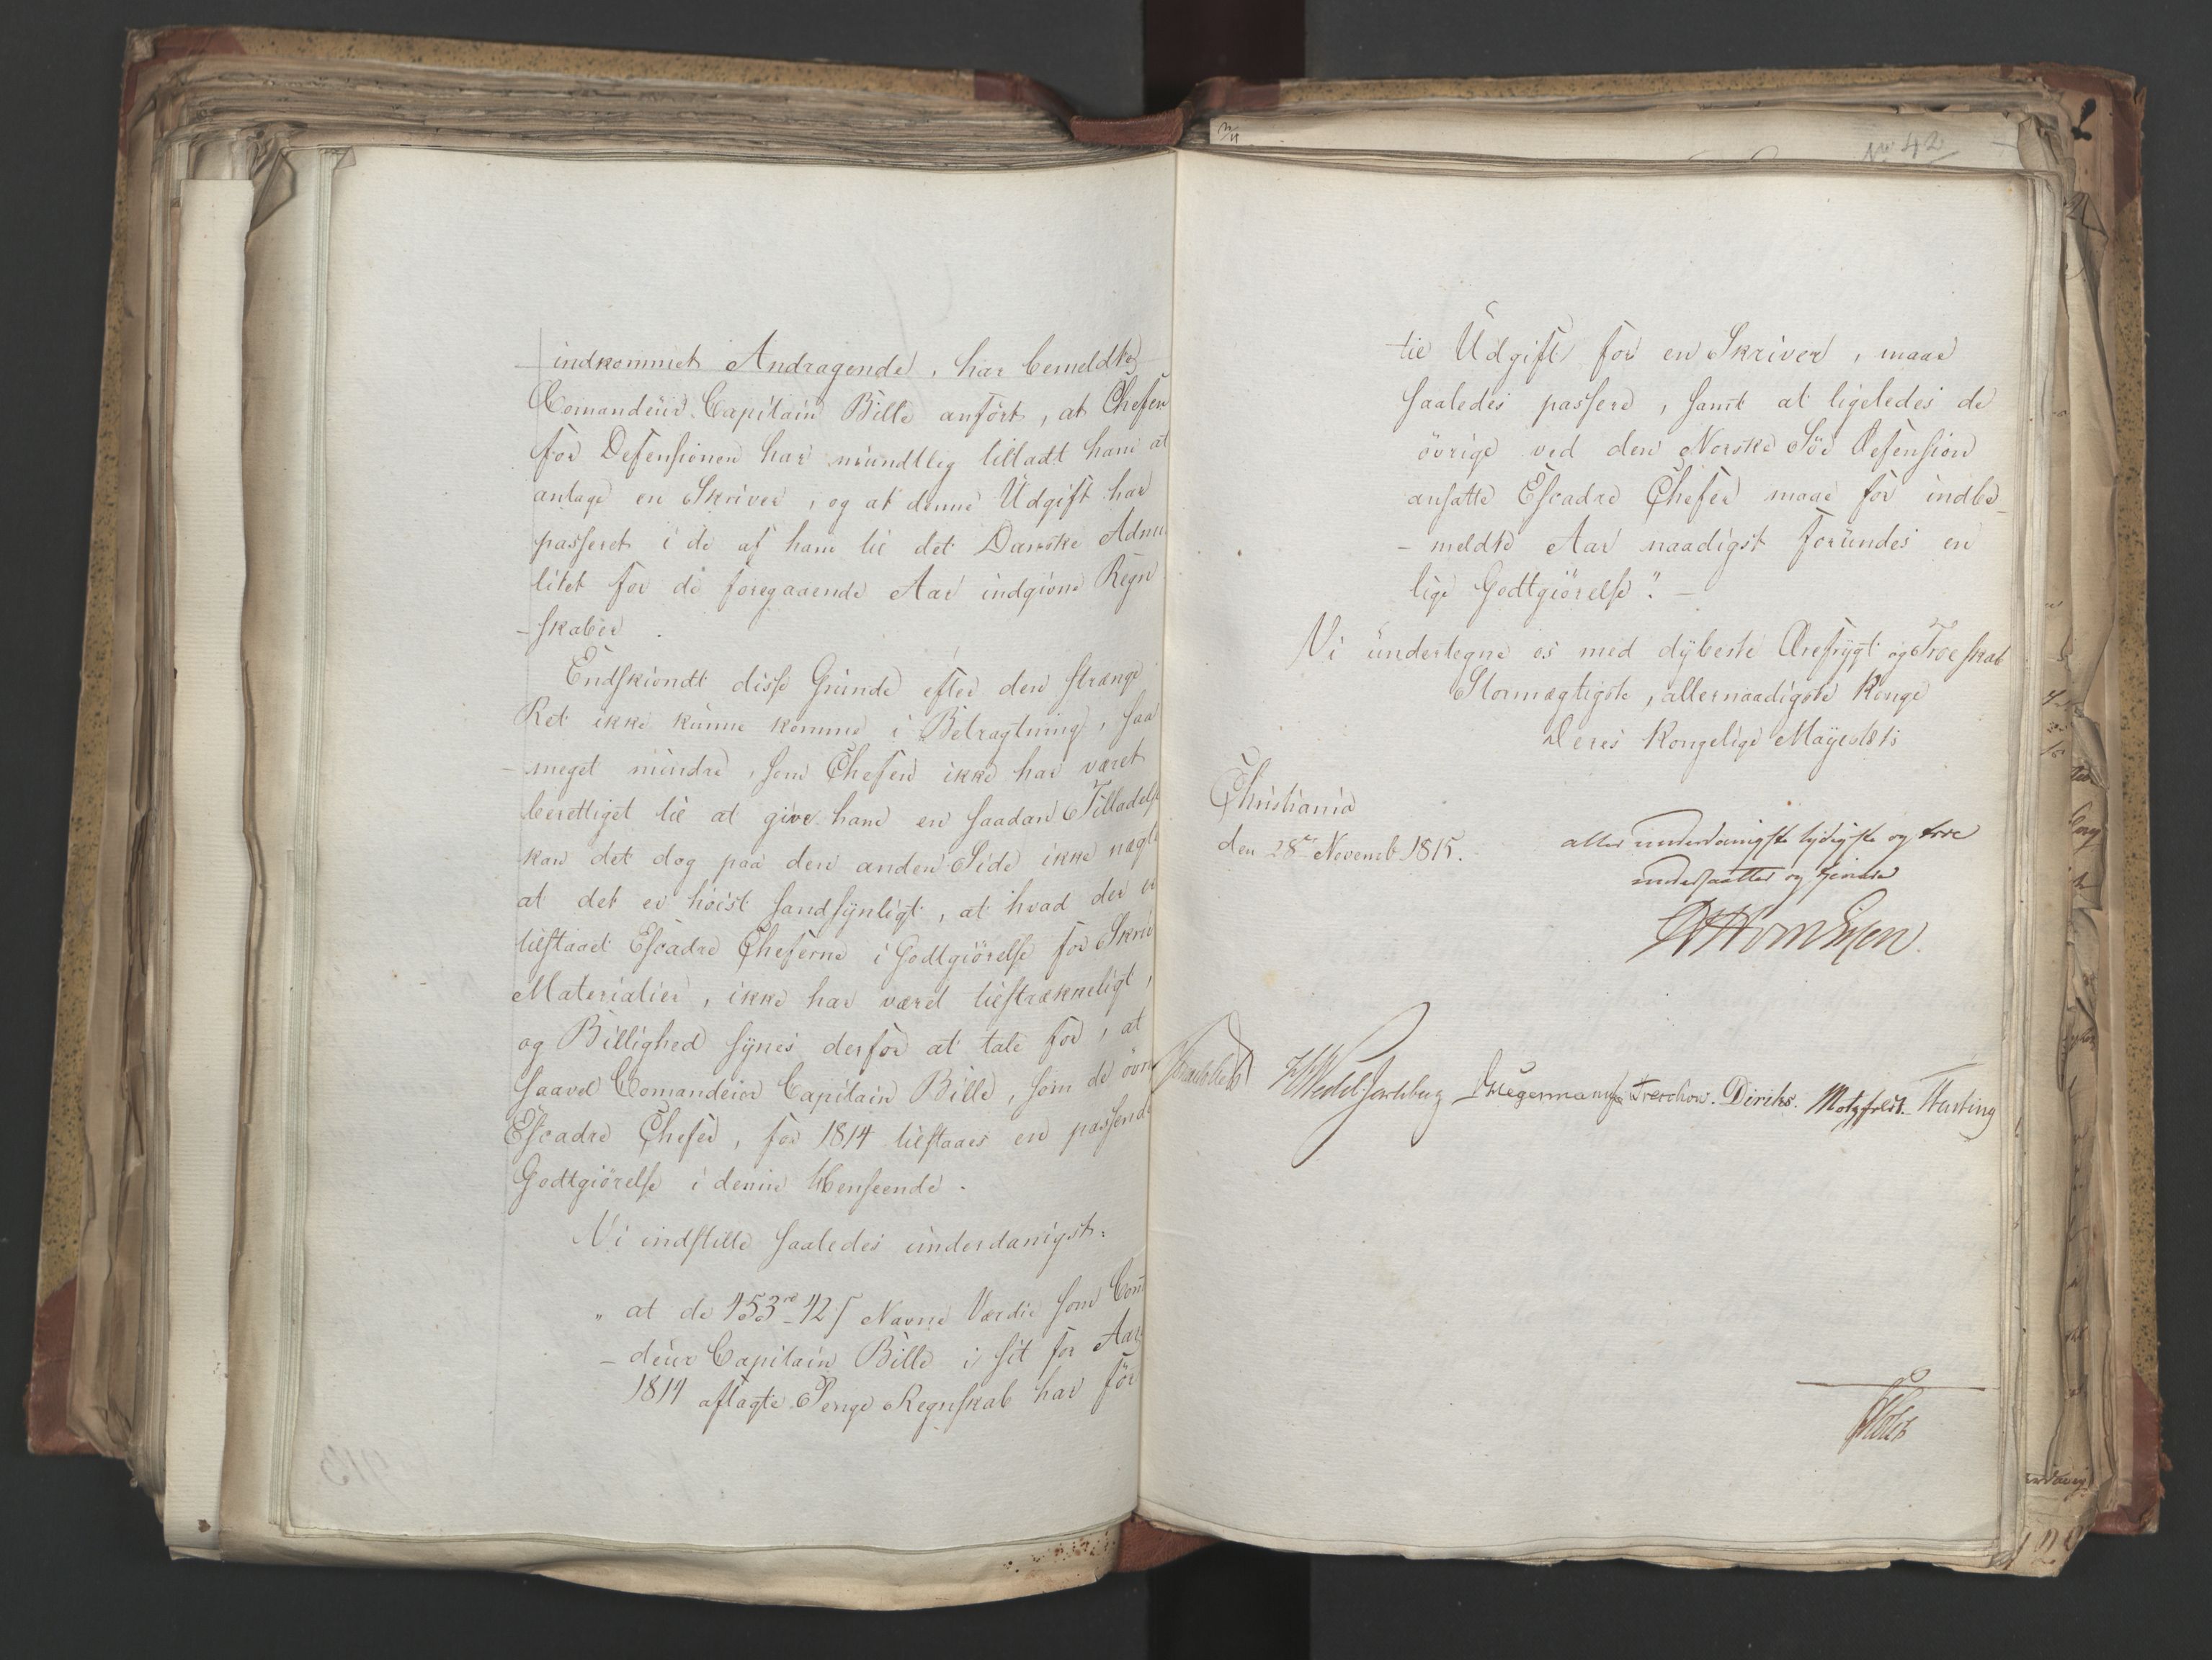 indkommet Andragende, har bemeldte
Comandeur Capitain Bille anført, at Chefen
for Defensionen har mundtlig tilladt ham at
antage en Skriver, og at denne Udgift har
passeret i de af ham til det Danske Admi
litet for de foregaaende Aar indgivne Regn
-skaber.
Endskiøndt disse Grunde efter den strænge
Ret ikke kunne komme i Betragtning, saa
-meget mindre, som Chefen ikke har været
berettiget til at give ham en saadan Tilladelse
kan det dog paa den anden Side ikke nægte
at det er høist sandsynligt, at hvad der er
tilstaaet Escadre Cheferne i Godtgiørelse for Skriv
Materialier, ikke har været tilstrækkeligt,
og Billighed synes derfor at tale for, at
saavel Comandeur Capitain Bille, som de øvri
Escadre Chefer, for 1814 tilstaaes en passende
Godtgiørelse i denne Henseende.
Vi indstille saaledes underdanigst:
" at de 453 rd 42 s Navne Værdie som Com
-deur Capitain Bille i sit for Aar
1814 aflagte Penge Regnskab har før
No 42
til Udgift for en Skriver, maae
saaledes passere, samt at ligeledes de
øvrige ved den Norske Søe Defension
ansatte Escadre Chefer maae for indbe
-meldte Aar naadigst forundes en
lige Godtgiørelse". -
Vi undertegne os med dybeste Ærefrygt og Troeskab
Stormægtigste, allernaadigste Konge
Deres Kongelige Mayestæts
Christiania
den 28de Novemb 1815.
allerunderdanigste lydigste og troe
undersaatter og tienere
Thomsen
HWedel Jarlsberg Hegermann Treschow. Diriks. Motzfeldt.